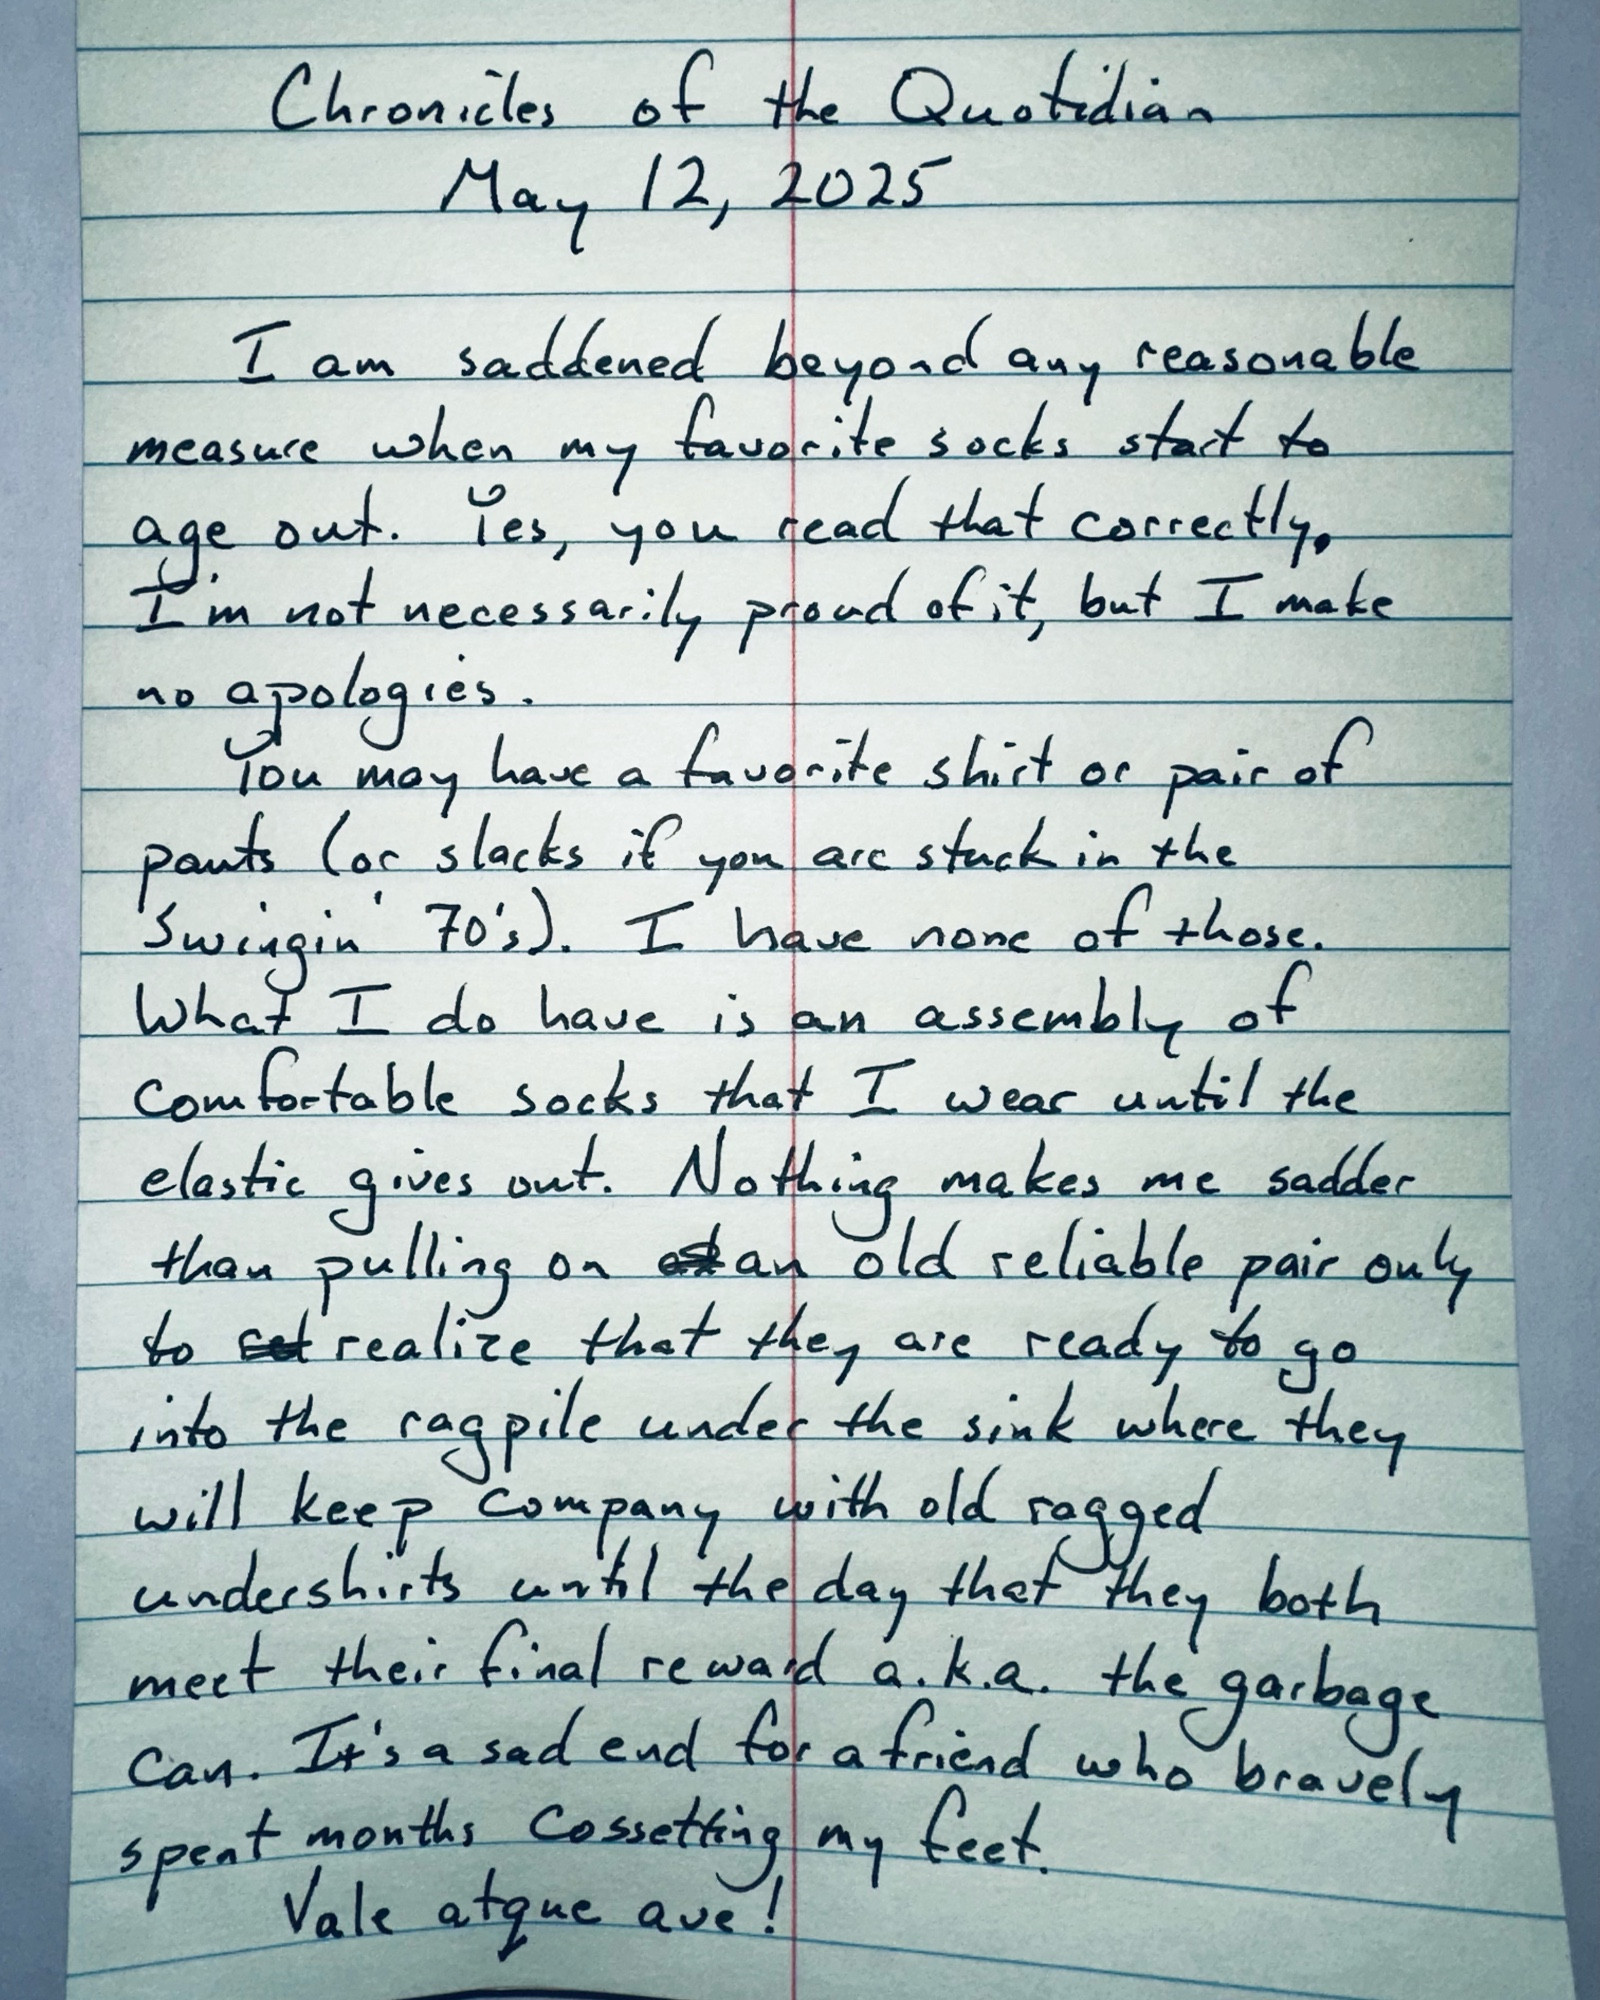 Chronicles of the Quotidian
May 12, 2025
I am saddened beyond any reasonable
measure when my favorite socks start to
age out. Yes, you read that correctly.
I'm not necessarily proud of it, but I make
no apologies.
You may have a favorite shirt or pair of
pants (or slacks if you are stuck in the
Swingin' 70's). I have none of those.
What I do have is an assembly of
comfortable socks that I wear until the
elastic gives out. Nothing makes me sadder
than pulling on an old reliable pair only
to realize that they are ready to go
into the ragpile under the sink where they
will keep company with old ragged
undershirts until the day that they both
meet their final reward a.k.a. the garbage
can. It's a sad end for a friend who bravely
spent months cossetting my feet.
Vale atque ave!